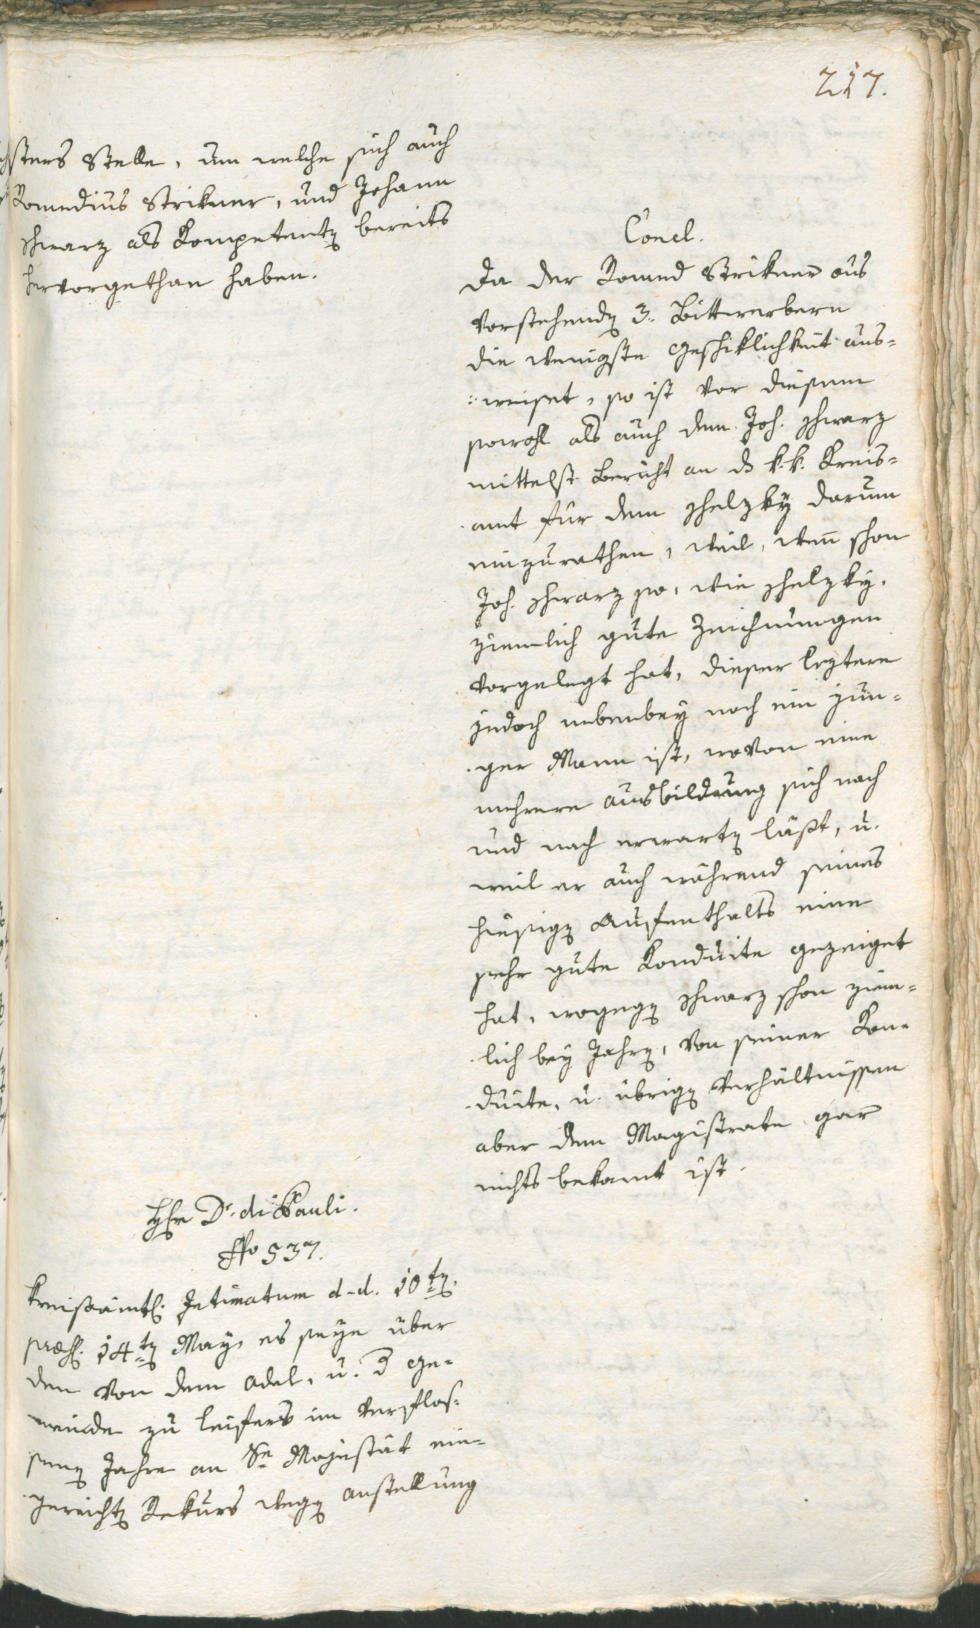 217.
sters Stelle, um welche sich auch
Romedius Strikner, und Johann
Schwarz als Kompetenten bereits
hervorgethan haben.
Concl.
Da der Romed Strikner aus
vorstehenden 3. Bittwerbern
die wenigste Geschiklichkeit aus=
weiset, so ist vor diesem
sowohl als auch dem Joh. Schwarz
mittelst Bericht an das k. k. Kreis=
amt für den Schelzky darum
einzurathen, weil, wenn schon
Joh. Schwarz so, wie Schelzky,
ziemlich gute Zeichnungen
vorgelegt hat, dieser leztere
jedoch nebenbey noch ein jun=
ger Mann ist, wovon eine
mehrere Ausbildung sich nach
und nach erwarten läßt, u.
weil er auch während seines
hiesigen Aufenthalts eine
sehr gute Konduite gezeiget
hat, wogegen Schwarz schon ziem=
lich bey Jahren, von seiner Kon=
duite, u. übrigen Verhältnissen
aber dem Magistrate gar
nichts bekannt ist.
Hr Dr. di Pauli.
No 537.
Kreisämtl. Intimatum d-d. 10ten
praes. 14ten May, es seye über
den von dem Adel, u. der Ge=
meinde zu Leifers im verflos=
senen Jahre an Se Majestät ein=
gereichten Rekurs wegen Anstellung